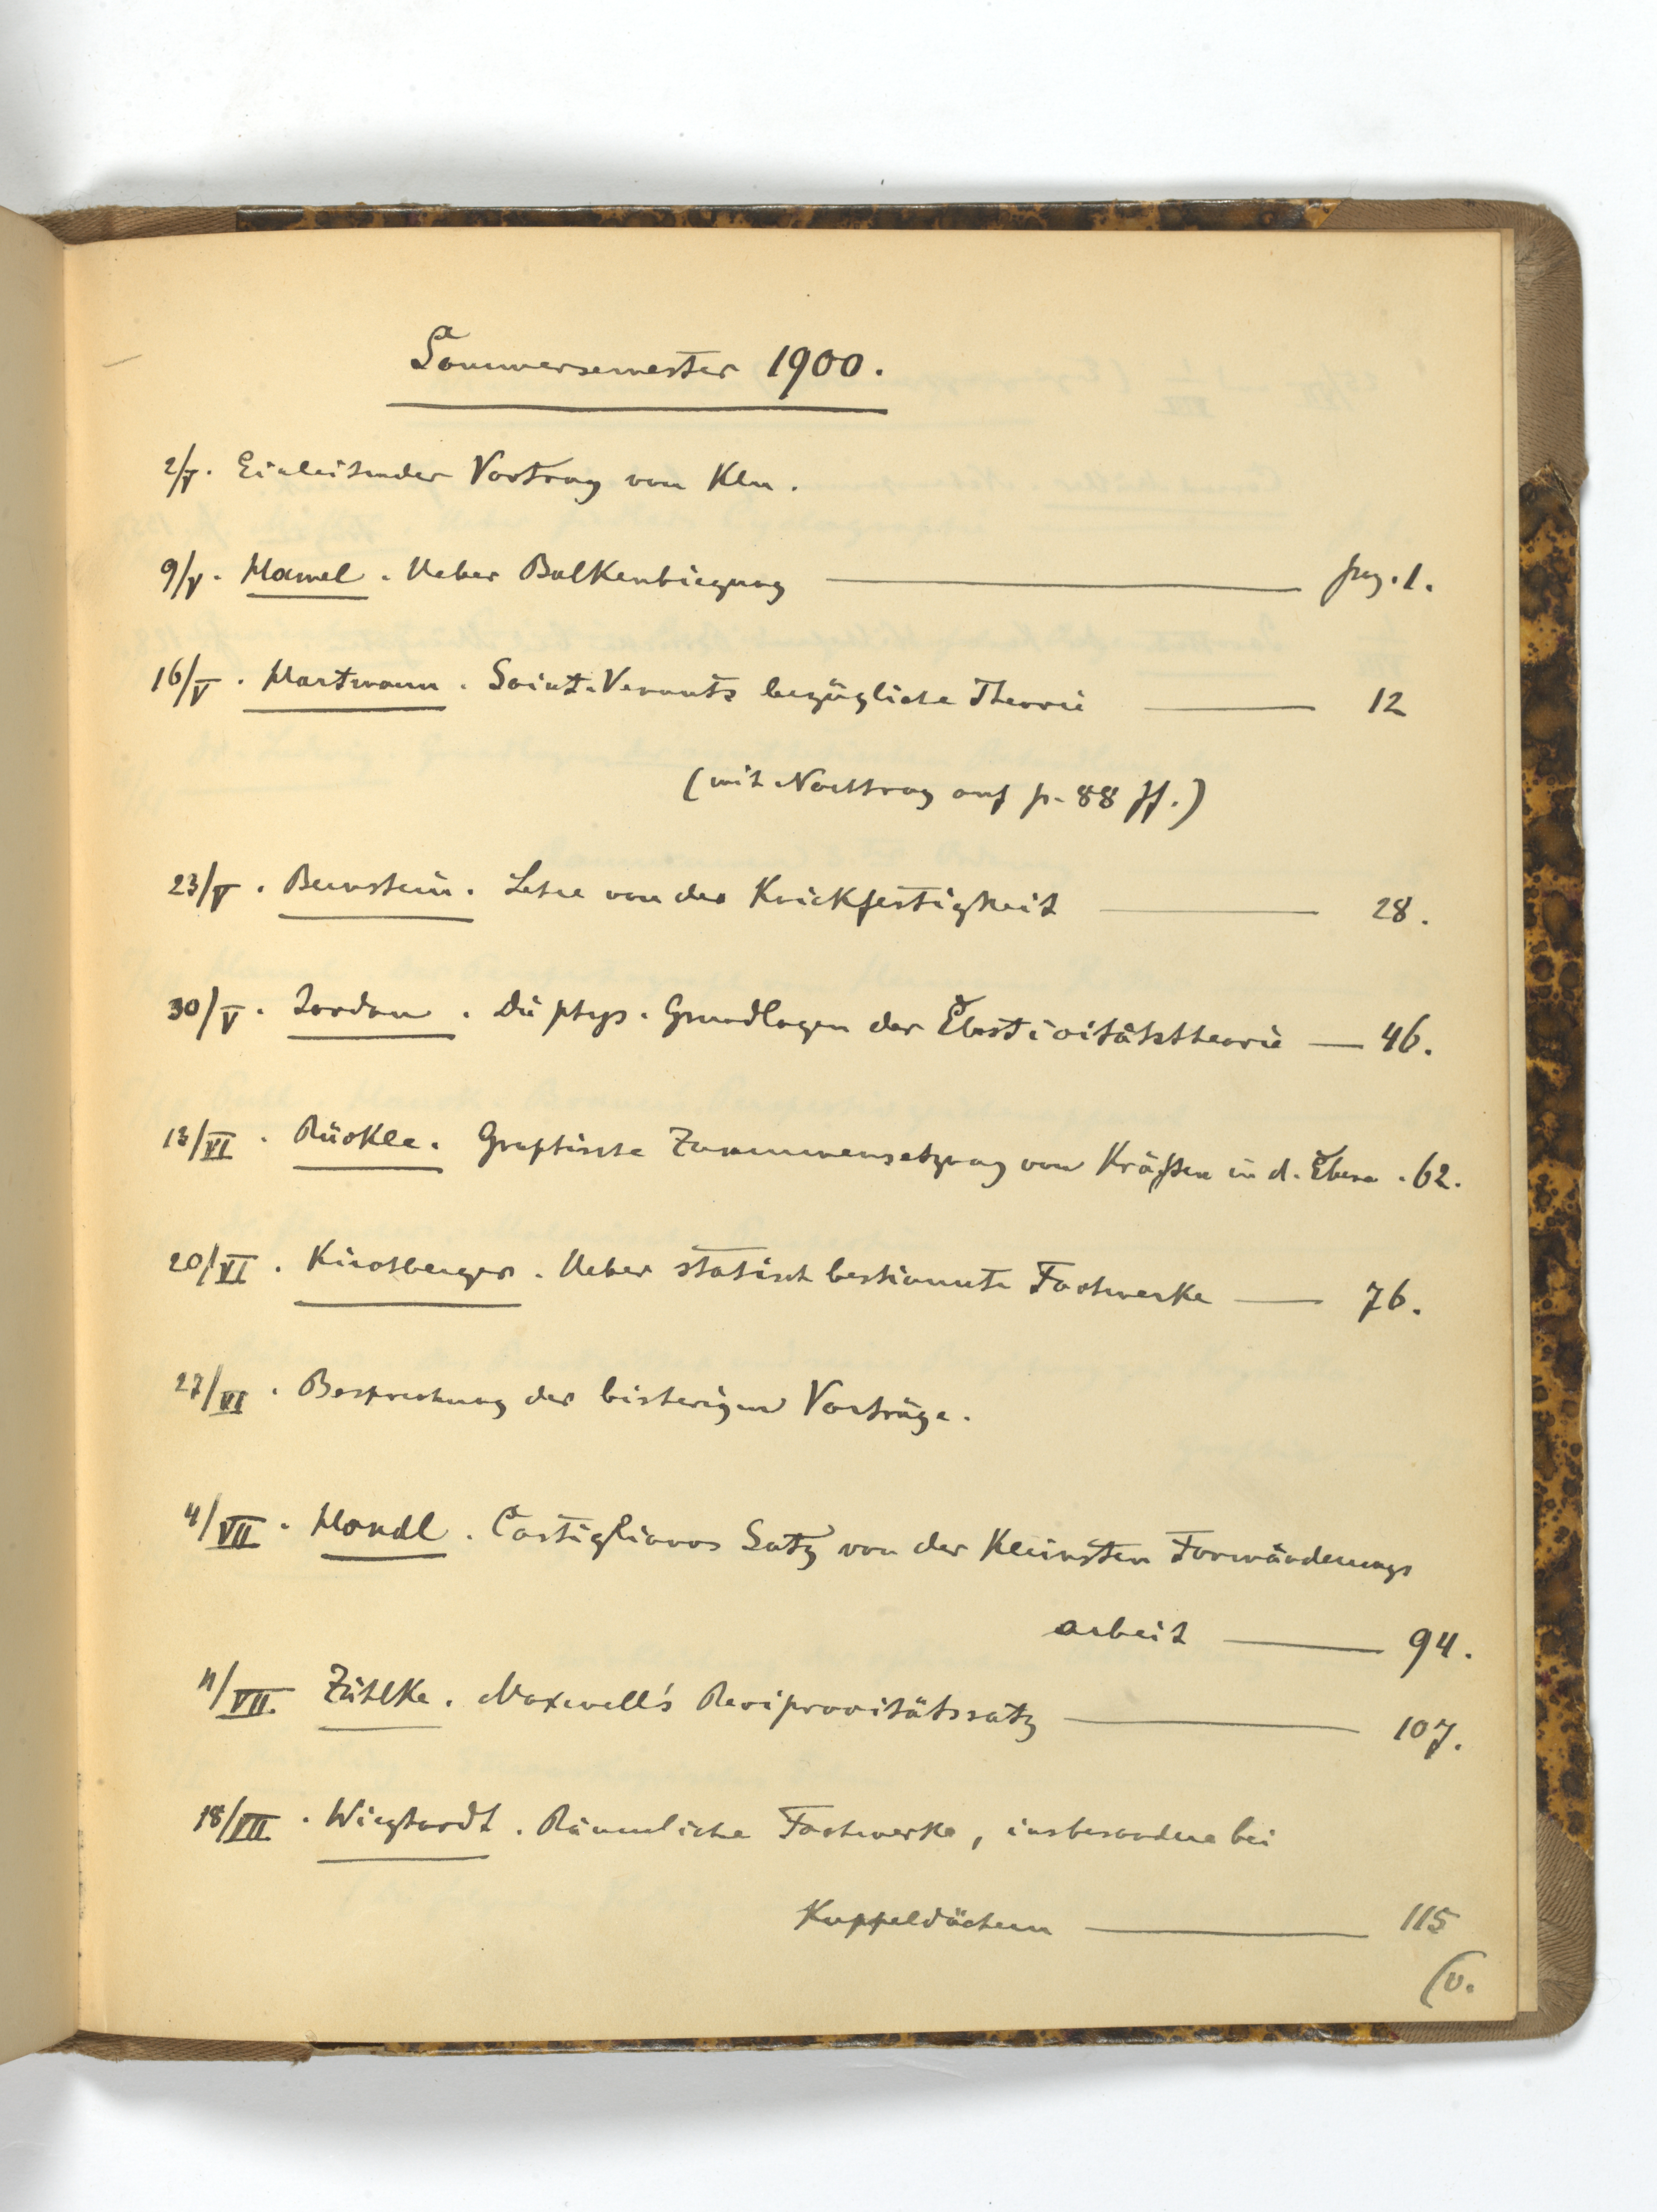 Sommersemester 1900.
2/V. Einleitender Vortrag von Kln.
9/V. Hamel. Ueber Balkenbiegung pag. 1.
16/V. Hartmann. Saint-Venants bezügliche Theorie 12
(mit Nachtrag auf p. 88 ff.)
23/V. Bernstein. Lehre von der Knickfestigkeit 28.
30/V. Jordan. Die phys. Grundlagen der Elasticitätstheorie 46.
13/VI. Rückle. Graphische Zusammensetzung von Kräften in d. Ebene. 62.
20/VI. Kirchberger. Ueber statisch bestimmte Fachwerke 76.
27/VI. Besprechung der bisherigen Vorträge.
4/VII. Handl. Castiglianos Satz von der Kleinsten Formänderungs
arbeit 94.
11/VII. Zühlke. Maxwell's Reciprocitätssatz 107.
18/VII. Wieghardt. Räumliche Fachwerke, insbesondere bei
Kuppeldächern 115
(v.